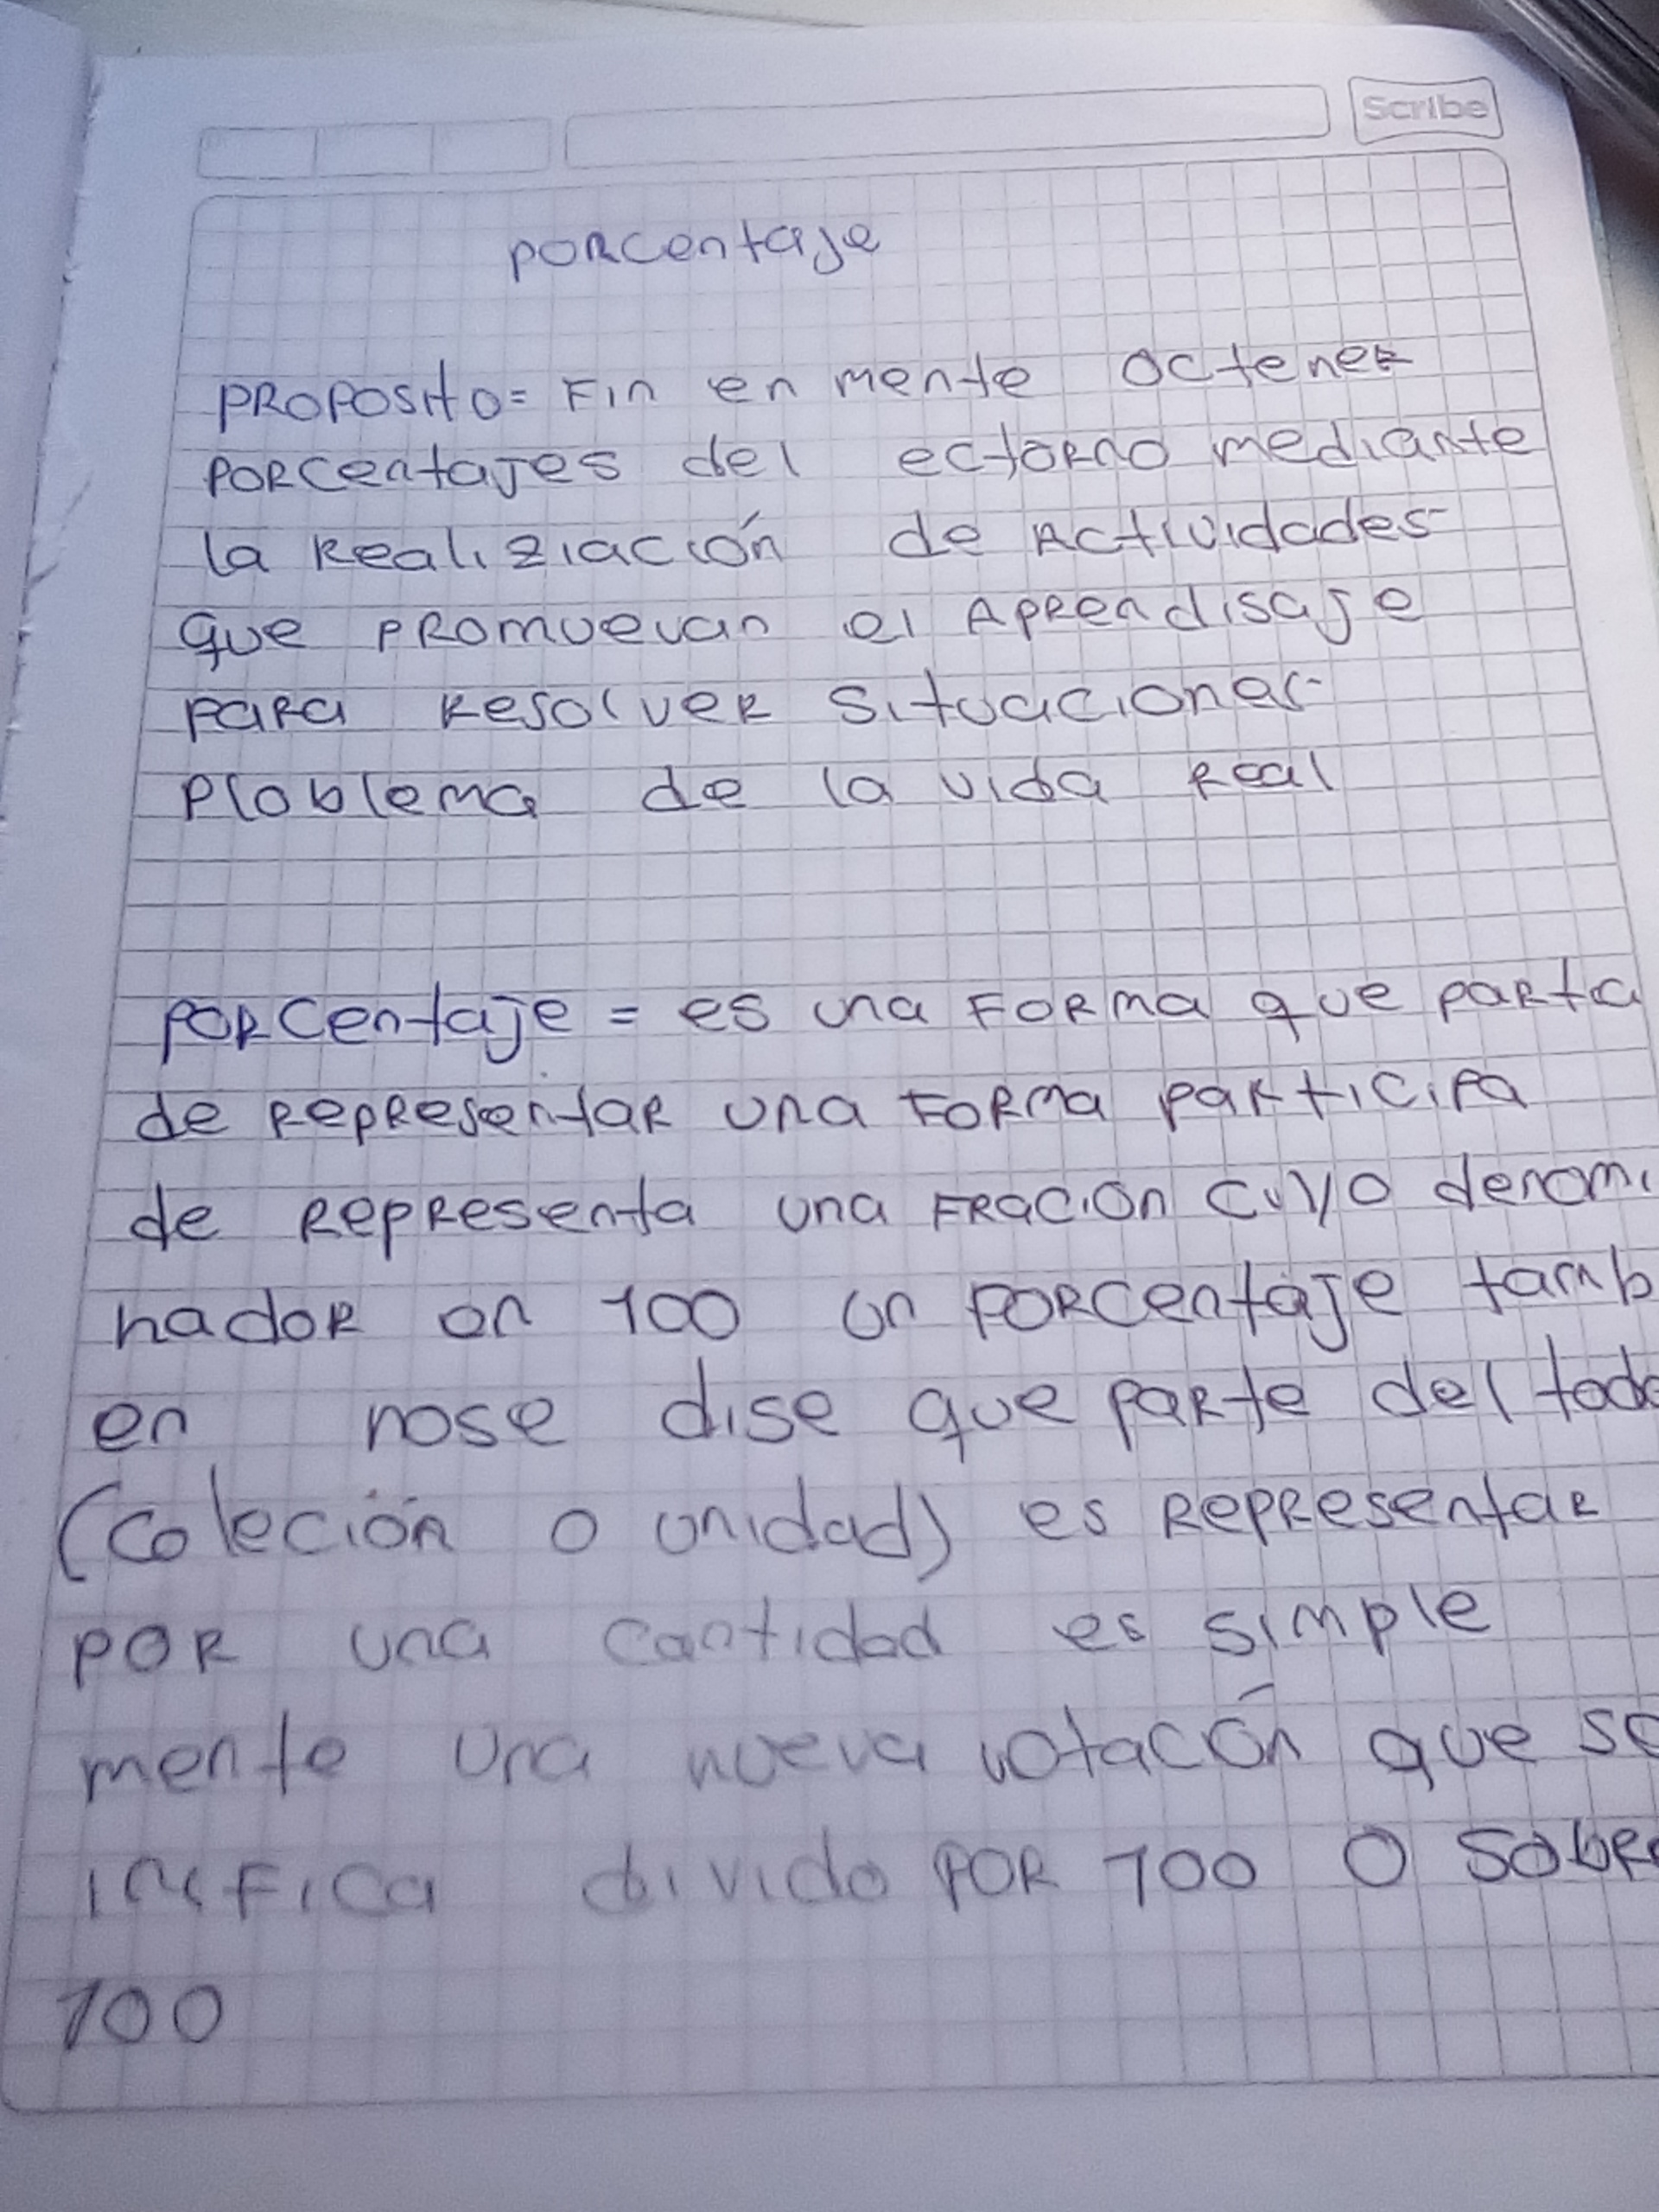 Scribe
porcentaje
PROPOSITO= Fin en mente octener
porcentajes del ectorno mediante
la Realiziación de Actividades
que promuevan el Aprendisaje
para resolver situaciones
Ploblema de la vida Real
porcentaje = es una forma que parta
de representar una forma participa
de representa una fracion cuyo denomi
nador en 100 un porcentaje tamb
en nose dise que parte del todo
(coleción o unidad) es representar
por una cantidad es simple
mente una nueva notacón que se
divido por 100 o sobre
100